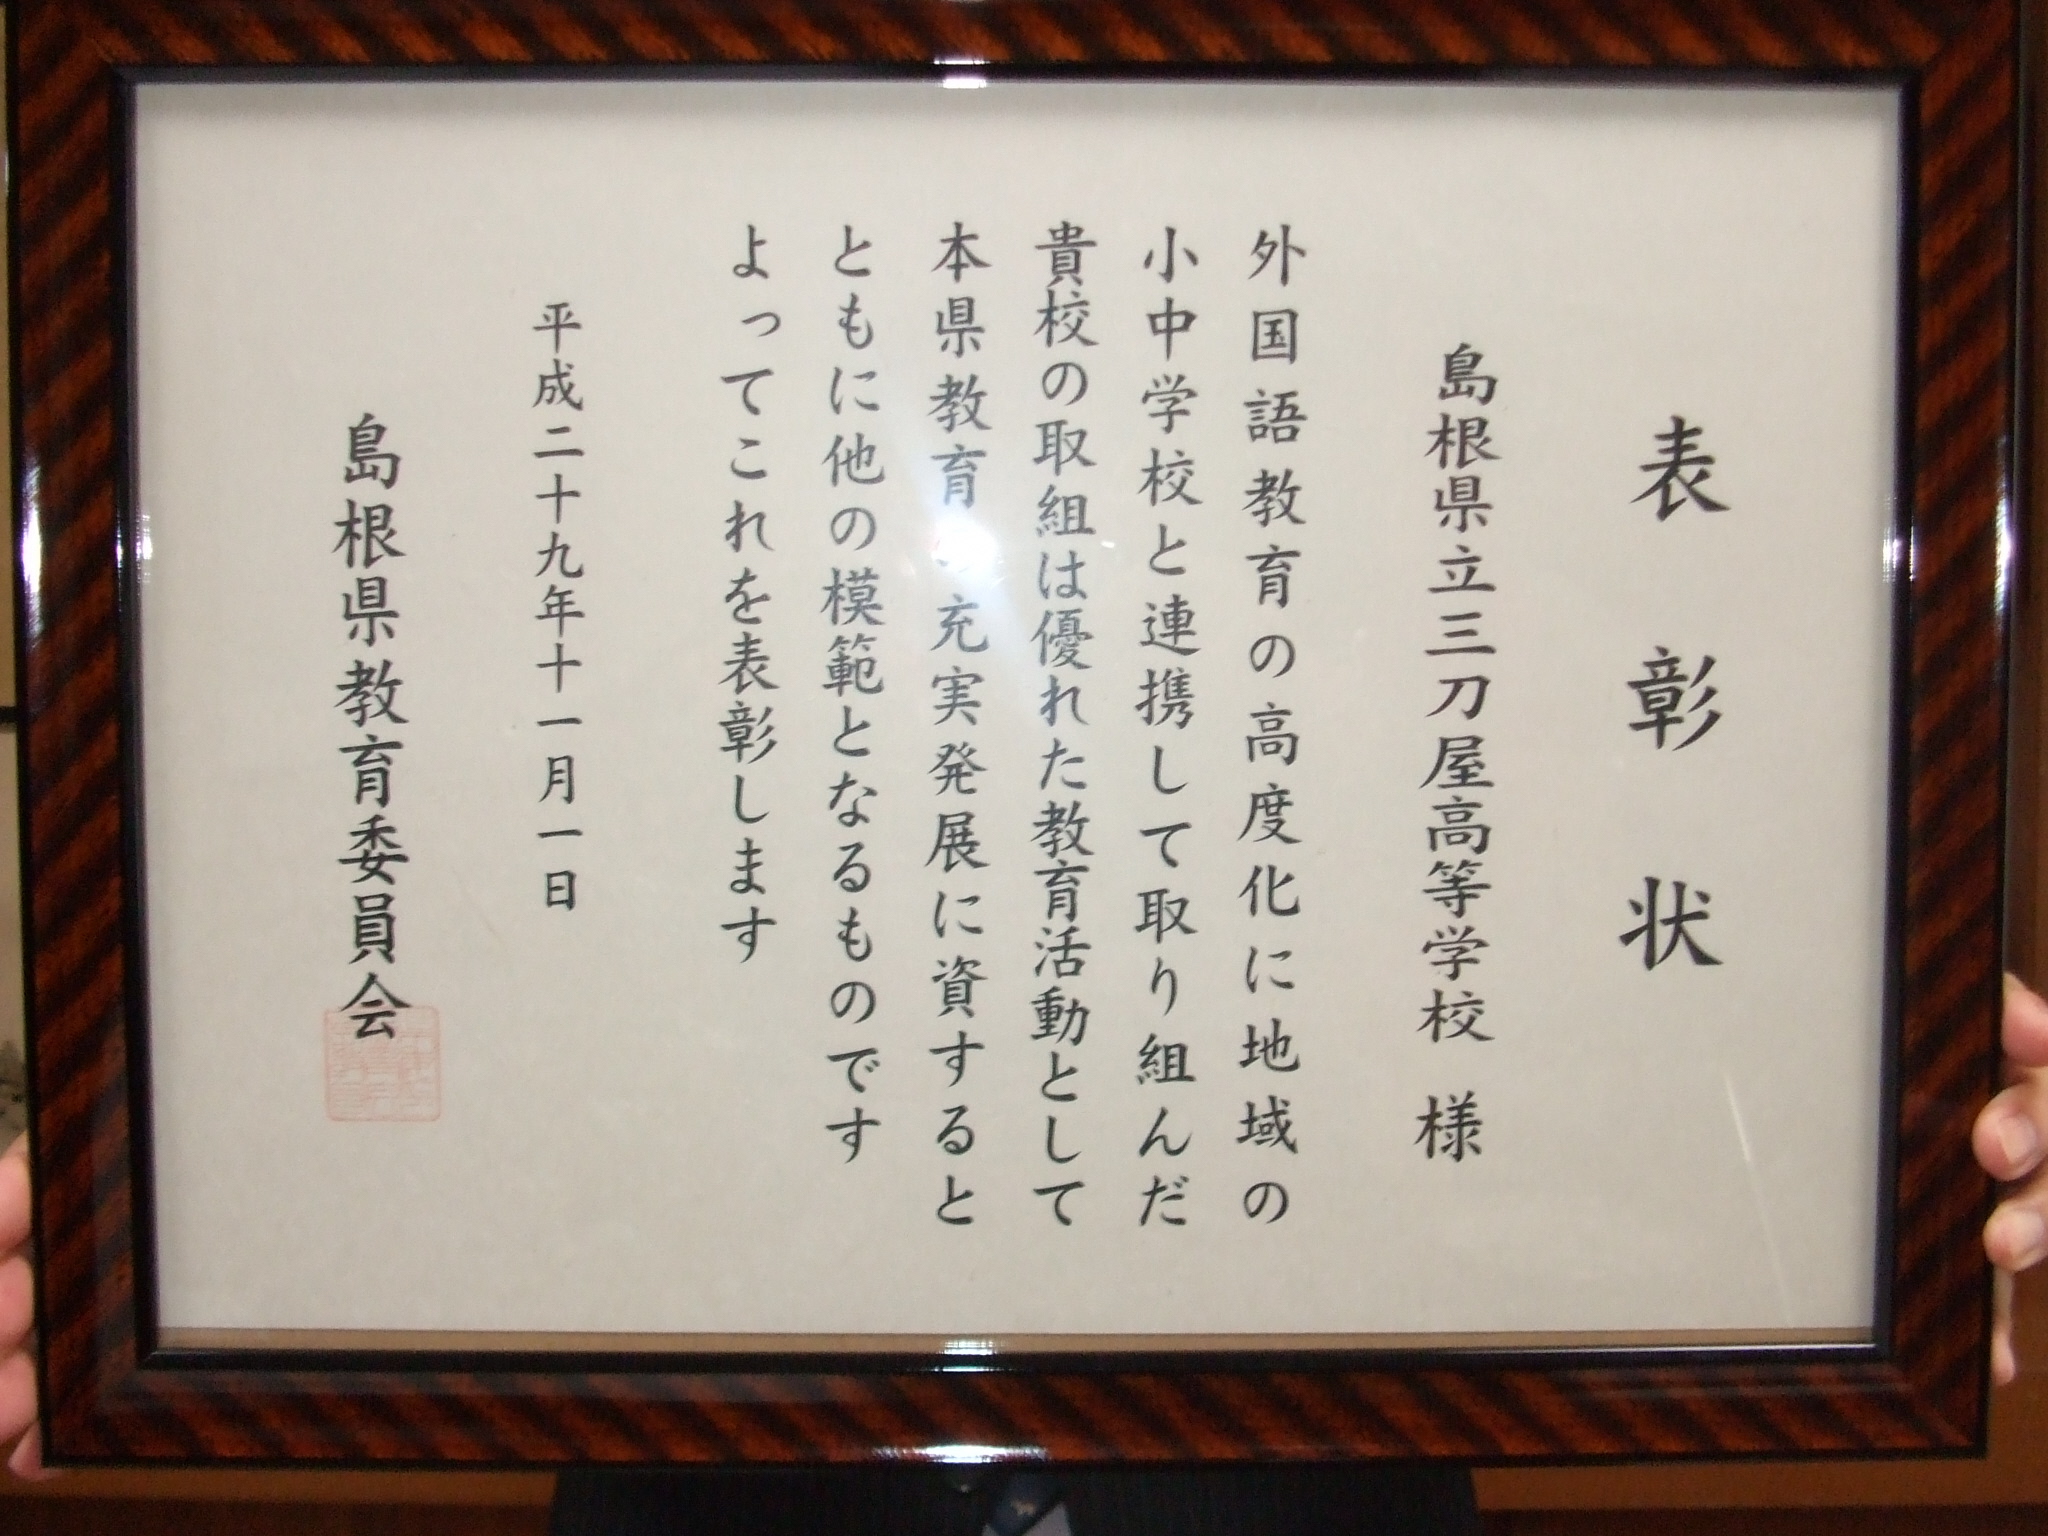 表彰状
島根県立三刀屋高等学校 様
外国語教育の高度化に地域の
小中学校と連携して取り組んだ
貴校の取組は優れた教育活動として
本県教育 充実発展に資すると
ともに他の模範となるものです
よってこれを表彰します
平成二十九年十一月一日
島根県教育委員会